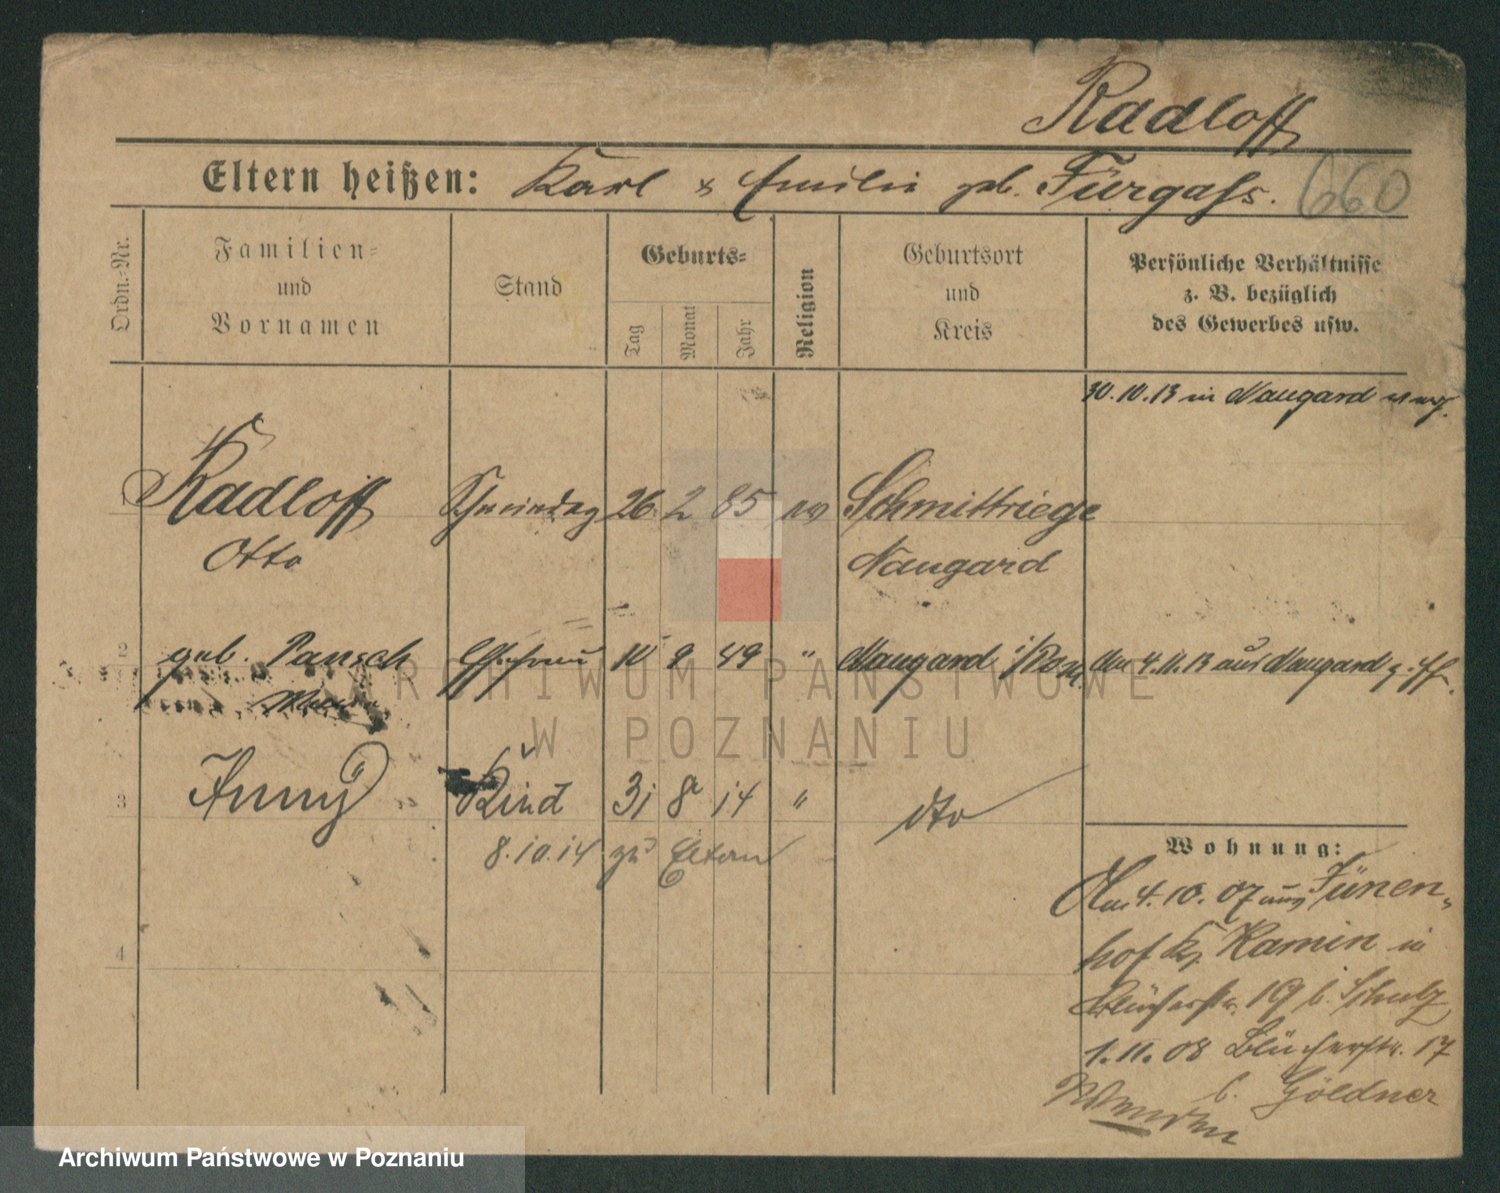 Radloff
Eltern heißen: Karl & Emilie geb. Fürgass.
660
Ordn.-Nr.
Familien-
und
Vornamen
Stand
Geburts-
Tag
Monat
Jahr
Religion
Geburtsort
und
Kreis
Persönliche Verhältnisse
z. B. bezüglich
des Gewerbes usw.
30.10.13 in Naugard
1 Radloff 26 2 85 ev Schmittriege
Otto Naugard
2 geb. Pansch Ehefrau 10 9 89 " Naugard i/Pom. Am 4.11.13 aus Naugard
3 Anny Kind 31 8 14 " dto
8.10.14 zu Eltern
4
Wohnung:
Am 4.10.07 aus Fünen-
hof Kr. Kamin in
Blücherstr. 19 b. Schulz
1.11.08 Blücherstr. 17
b. Göldner
ARCHIWUM PAŃSTWOWE
W POZNANIU
Archiwum Państwowe w Poznaniu